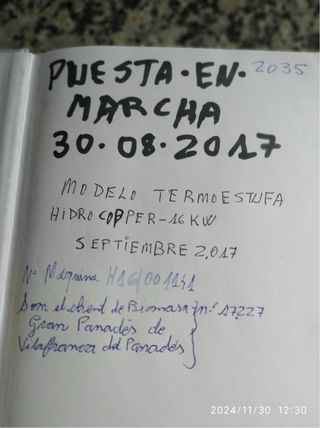 PUESTA·EN· 2035
MARCHA
30·08·2017
MODELO TERMOESTUFA
HiDROCOPPER-16KW
SEPTIEMBRE 2,017
Nº Máquina H16/001141
Som el client de Biomasa} nº 17227
Gran Panadés de
Vilafranca del Panadés
2024/11/30 12:30